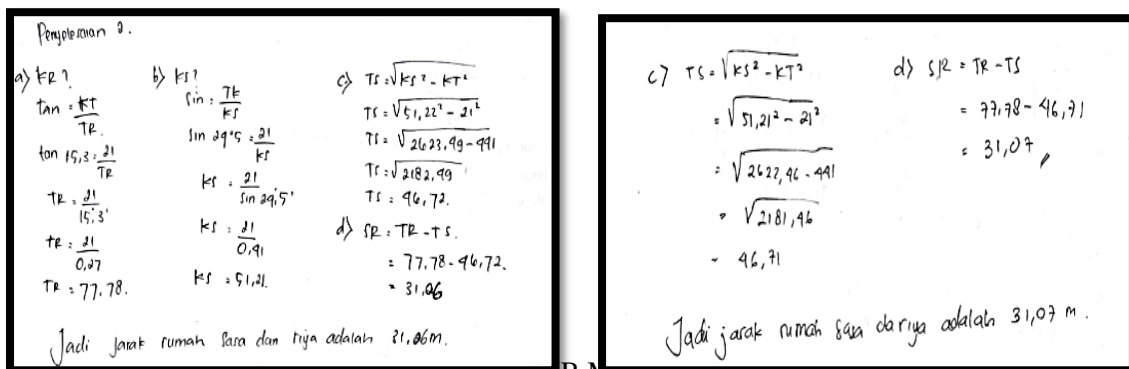 Penyelesaian 2.
a) KR ?
tan = KT / TR
tan 15,3 = 21 / TR
TR = 21 / 15,3'
TR = 21 / 0,27
TR = 77.78.
b) KS ?
sin = TK / KS
sin 24°5 = 21 / KS
KS = 21 / sin 24,5'
KS = 21 / 0,41
KS = 51,21.
c) TS = √KS² - KT²
TS = √51,22² - 21²
TS = √2623,49 - 441
TS = √2182,49
TS = 46,72.
d) SR = TR - TS.
= 77,78 - 46,72.
= 31,06
Jadi jarak rumah Sara dan riya adalah 31,06 m.
c) TS = √KS² - KT²
= √51,21² - 21²
= √2622,46 - 441
= √2181,46
= 46,71
d) SR = TR - TS
= 77,78 - 46,71
= 31,07
Jadi jarak rumah Sara dariya adalah 31,07 m.